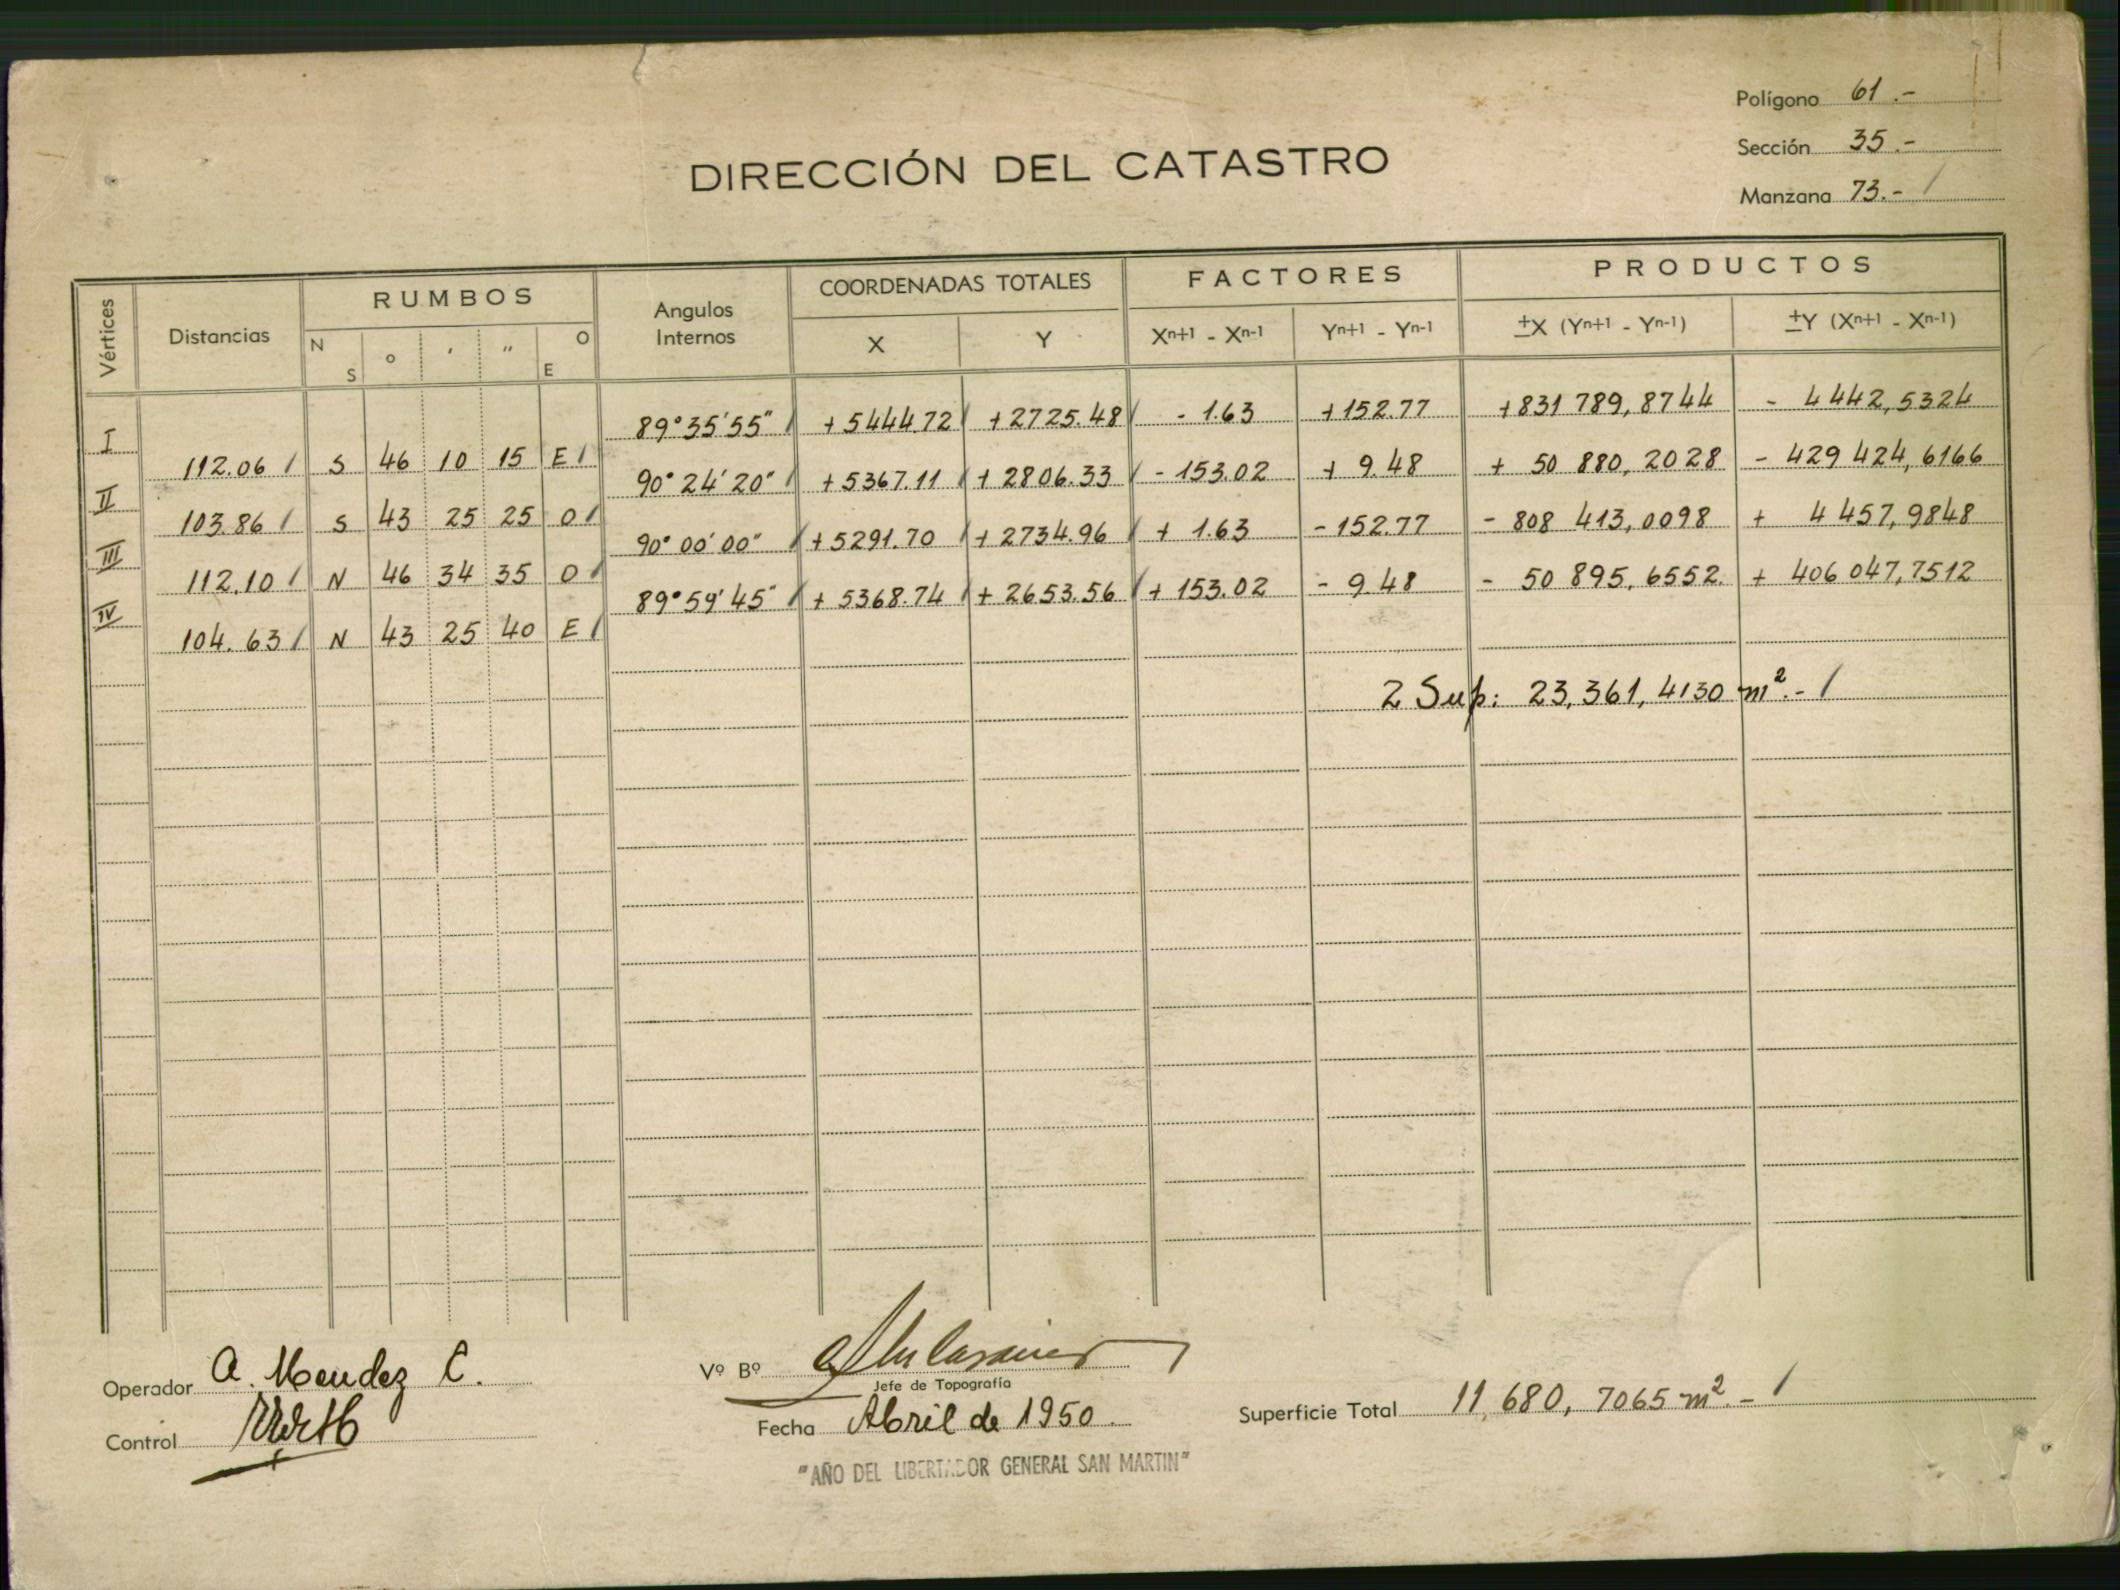 Polígono 61.-
Sección 35.-
Manzana 73.-
DIRECCIÓN DEL CATASTRO
Vértices Distancias RUMBOS Angulos Internos COORDENADAS TOTALES FACTORES PRODUCTOS
N S ° ' " O E X Y Xn+1 - Xn-1 Yn+1 - Yn-1 ±X (Yn+1 - Yn-1) ±Y (Xn+1 - Xn-1)
I 89°35'55" +5444.72 +2725.48 - 1.63 +152.77 +831 789,8744 - 4 442,5324
112.06 S 46 10 15 E
II 90°24'20" +5367.11 +2806.33 - 153.02 + 9.48 + 50 880,2028 - 429 424,6166
103.86 S 43 25 25 O
III 90°00'00" +5291.70 +2734.96 + 1.63 -152.77 - 808 413,0098 + 4 457,9848
112.10 N 46 34 35 O
IV 89°59'45" + 5368.74 + 2653.56 + 153.02 - 9.48 - 50 895,6552. + 406 047,7512
104.63 N 43 25 40 E
2 Sup: 23,361,4130 m².-
Operador A. Mendez C.
Control
Vº Bº
Jefe de Topografía
Fecha Abril de 1950.
Superficie Total 11,680,7065 m².-
"AÑO DEL LIBERTADOR GENERAL SAN MARTIN"